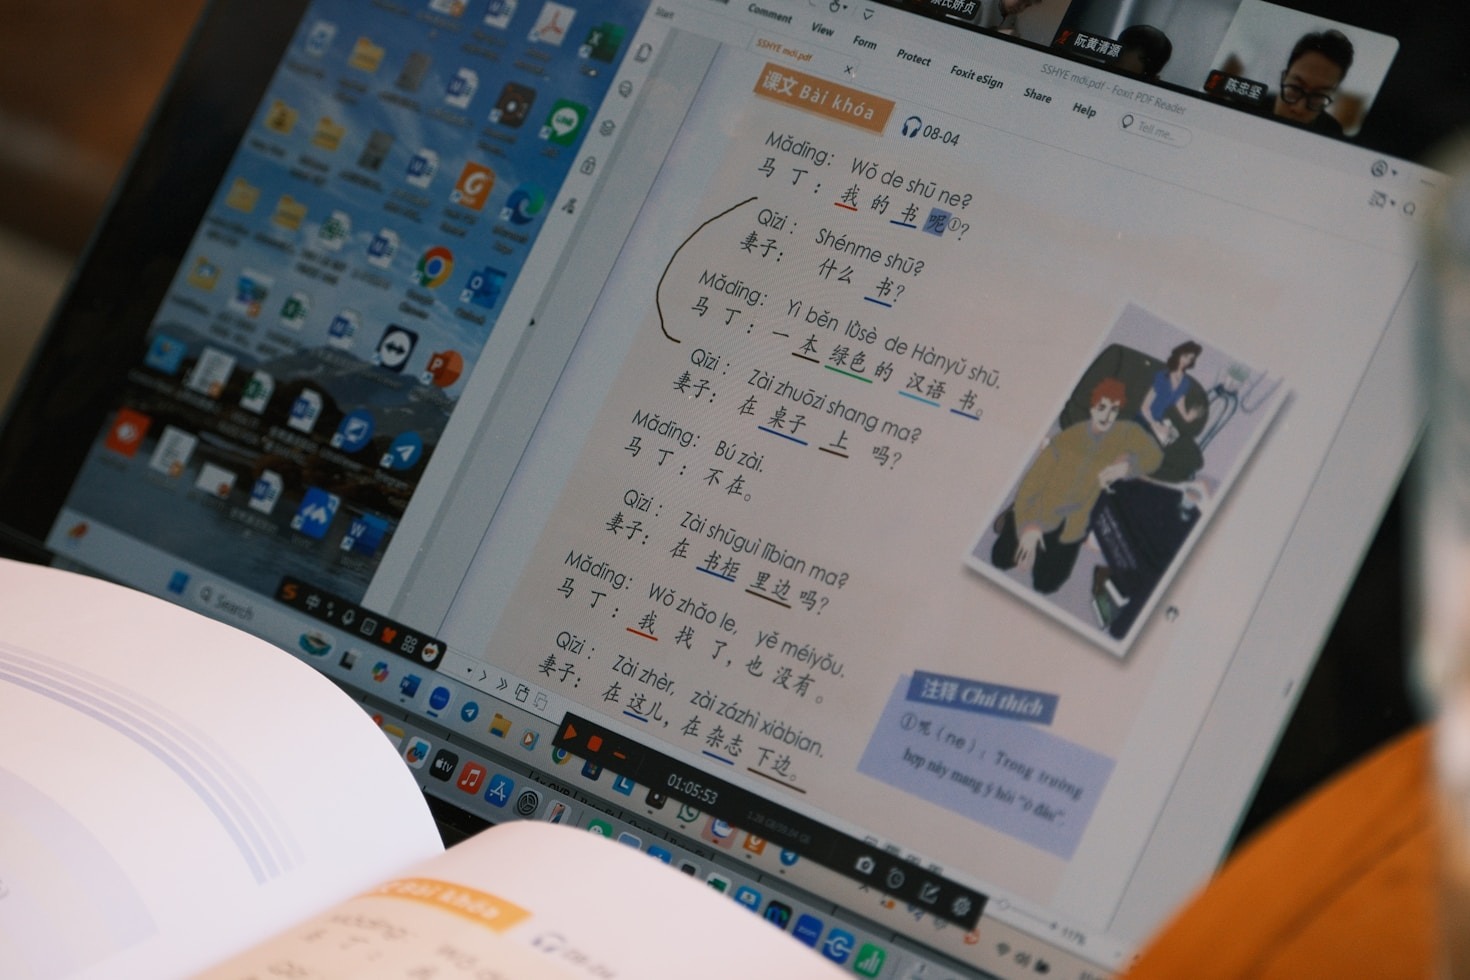 Start
Comment
View
Form
Protect
Foxit eSign
Share
Help
Tell me...
SSHYE mới.pdf - Foxit PDF Reader
SSHYE mới.pdf
阮黄清源
陈忠坚
课文 Bài khóa
08-04
Mǎdīng: Wǒ de shū ne?
马丁：我的书呢①？
Qīzi: Shénme shū?
妻子：什么书？
Mǎdīng: Yì běn lǜsè de Hànyǔ shū.
马丁：一本绿色的汉语书。
Qīzi: Zài zhuōzi shang ma?
妻子：在桌子上吗？
Mǎdīng: Bú zài.
马丁：不在。
Qīzi: Zài shūguì lǐbian ma?
妻子：在书柜里边吗？
Mǎdīng: Wǒ zhǎo le, yě méiyǒu.
马丁：我找了，也没有。
Qīzi: Zài zhèr, zài zázhì xiàbian.
妻子：在这儿，在杂志下边。
注释 Chú thích
①呢 (ne): Trong trường
hợp này mang ý hỏi "ở đâu".
Search
中
01:05:53
117%
Bài khóa
08-04